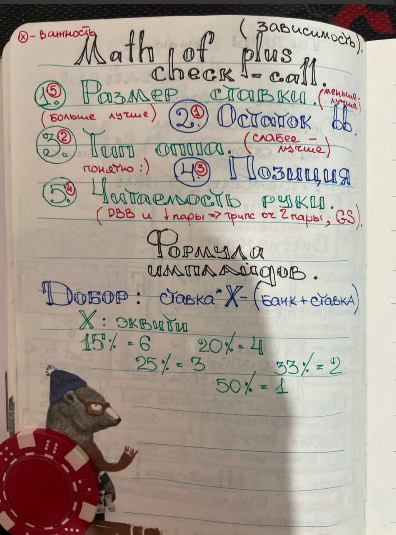 (x) - важность
(зависимость).
Math of plus
check-call.
1. (5) Размер ставки. (меньше - лучше)
(больше лучше) 2. (1) Остаток
3. (2) Тип оппа. (слабее - лучше)
понятно :) 4. (3) Позиция
5. (4) Читаемость руки.
(РВВ и ↓ пары => трипс от 2 пары, GS).
Формула
имплайдов.
Добор: ставка * X - (банк + ставка)
X: эквити
15% = 6 20% = 4
25% = 3 33% = 2
50% = 1